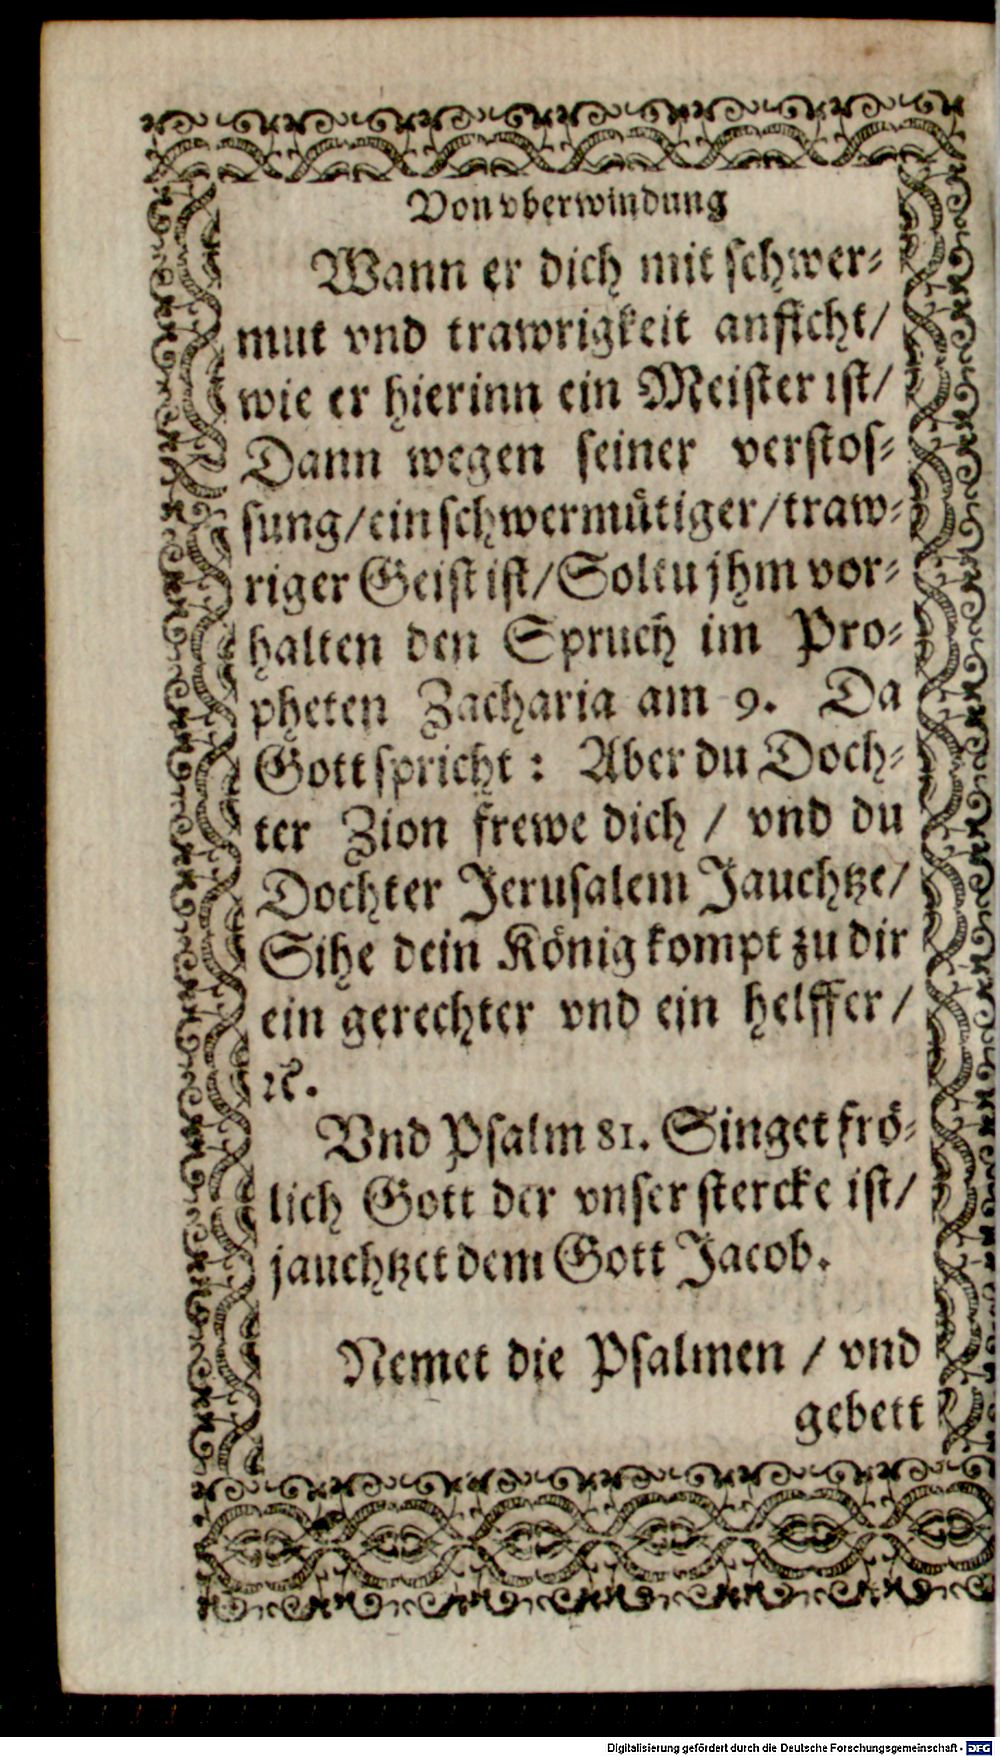 Von vberwindung
Wann er dich mit schwer-
mut vnd trawrigkeit anficht/
wie er hierinn ein Meister ist/
Dann wegen seiner verstos-
sung/ein schwermütiger/traw-
riger Geist ist/Soltu jhm vor-
halten den Spruch im Pro-
pheten Zacharia am 9. Da
Gott spricht: Aber du Doch-
ter Zion frewe dich / vnd du
Dochter Jerusalem Jauchtze/
Sihe dein König kompt zu dir
ein gerechter vnd ein helffer/
ꝛc.
Vnd Psalm 81. Singet frö-
lich Gott der vnser stercke ist/
jauchtzet dem Gott Jacob.
Nemet die Psalmen / vnd
gebett
Digitalisierung gefördert durch die Deutsche Forschungsgemeinschaft - DFG